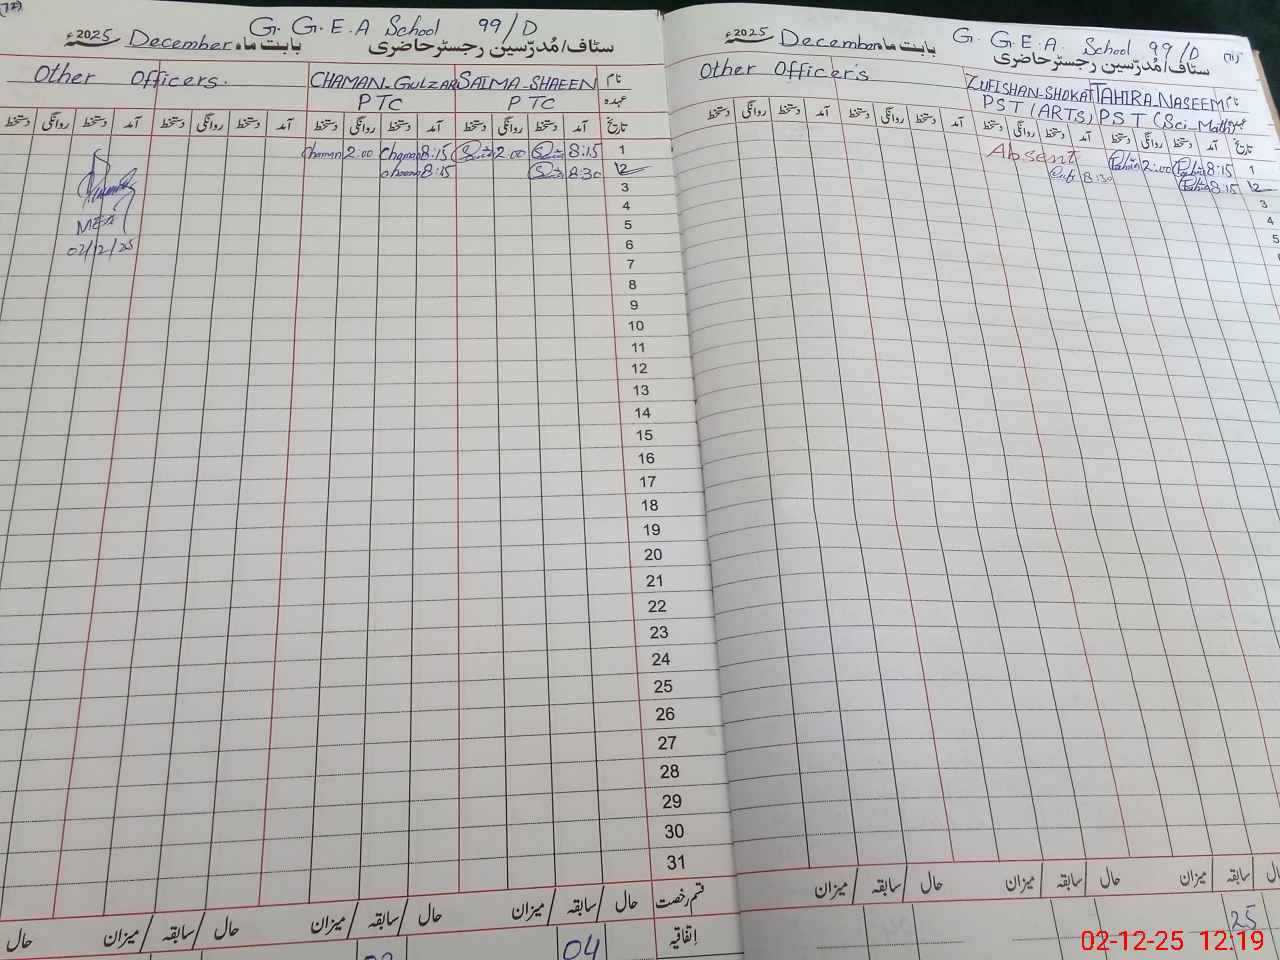 (12)
G. G. E. A School 99/D
سٹاف/مُدرّسین رجسٹر حاضری بابت ماہ December 2025ء
نام SAIMA-SHAEEN CHAMAN-GULZAR Other Officers.
عہدہ PTC PTC
تاریخ آمد دستخط روانگی دستخط آمد دستخط روانگی دستخط آمد دستخط روانگی دستخط آمد دستخط روانگی دستخط
1 8:15 2.00 8:15 Chaman 2.00 Chaman
2 8:30 8:15
3
4
5 MEA
6 02/12/25
7
8
9
10
11
12
13
14
15
16
17
18
19
20
21
22
23
24
25
26
27
28
29
30
31
قسم رخصت حال سابقہ میزان حال سابقہ میزان حال سابقہ میزان حال
اتفاقیہ 04
G. G. E. A. School 99/D
سٹاف/مُدرّسین رجسٹر حاضری بابت ماہ December 2025ء
نام TAHIRA-NASEEM ZUFISHAN-SHOKAT Other Officer's
PST (Sci-Math) PST (ARTS)
تاریخ آمد دستخط روانگی دستخط آمد دستخط روانگی دستخط آمد دستخط روانگی دستخط آمد دستخط روانگی دستخط
1 8:15 2:00 Absent
2 8:15 8:30
3
4
5
حال سابقہ میزان حال سابقہ میزان حال سابقہ میزان
25
02-12-25 12:19